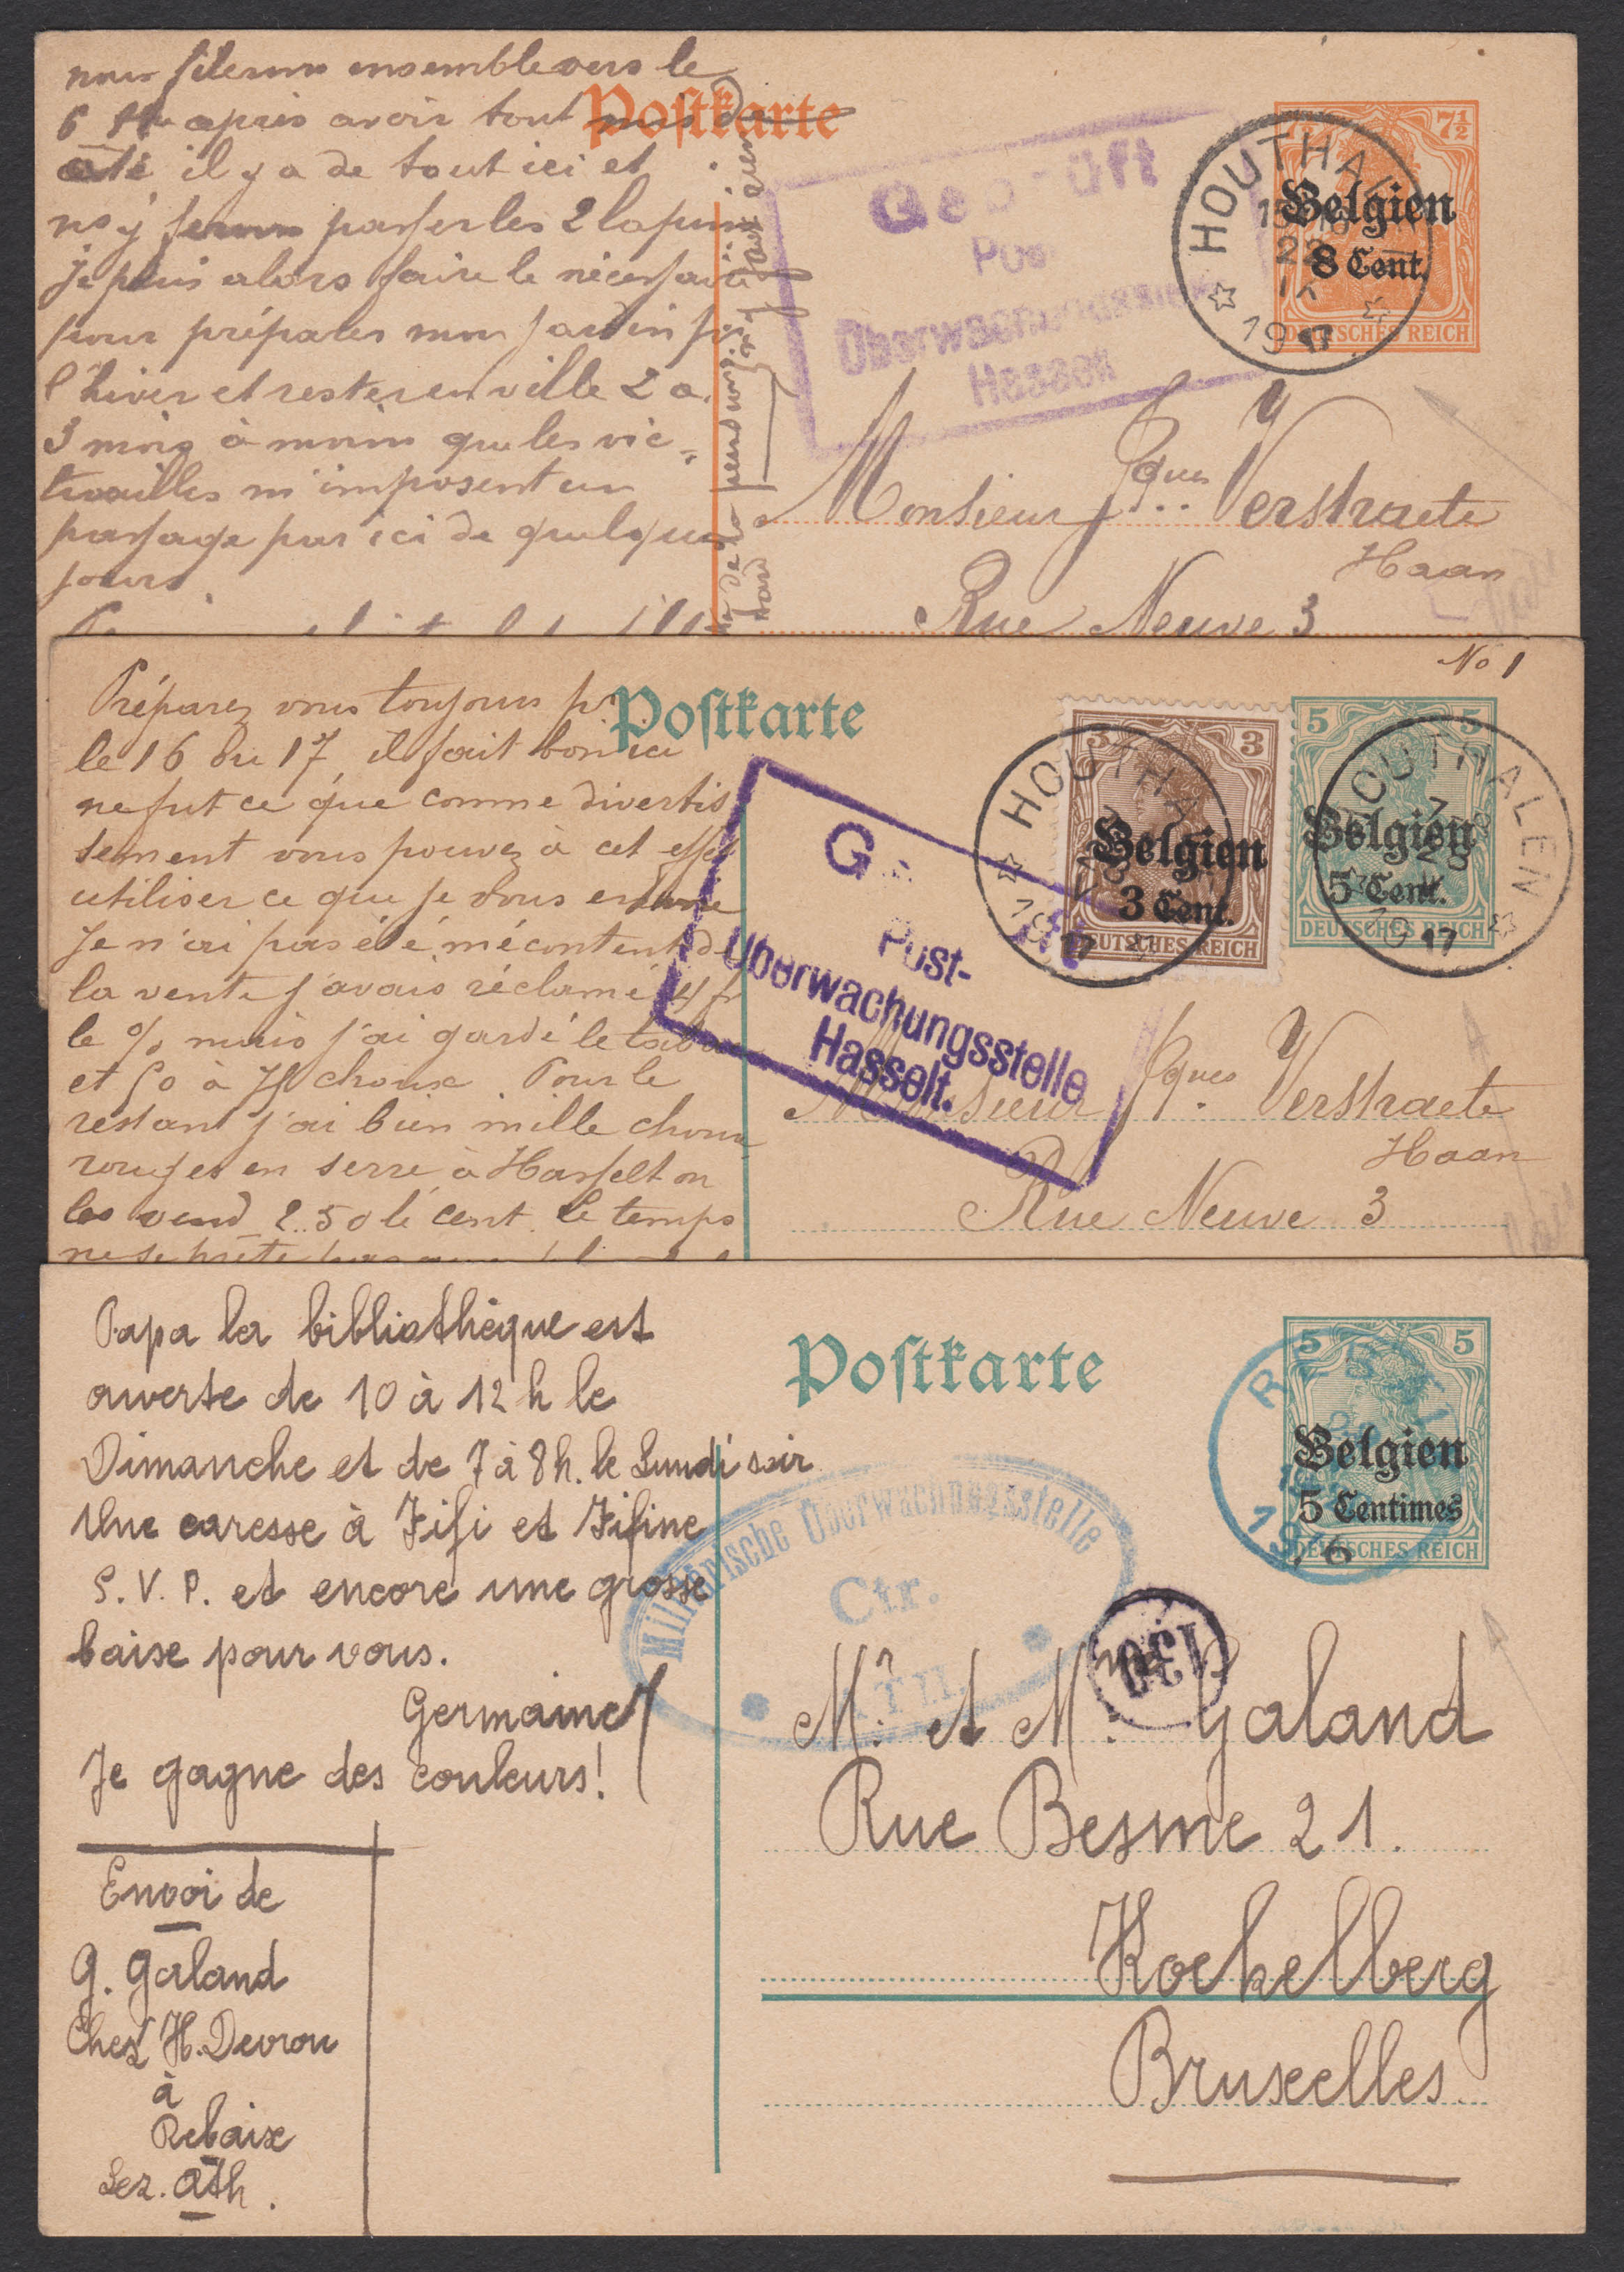 nous filerons ensemble vers le
6 après avoir tout mis de
côté il y a de tout ici et
ns y ferons passer les 2 lapins
je puis alors faire le nécessaire
pour préparer mon jardin pr
l'hiver et rester en ville 2 a
3 mois à moins que les vic-
tuailles m'imposent un
passage par ici de quelques
jours.
Postkarte
Geprüft
Post
Überwachungsstelle
Hasselt
HOUTHAL
22
1917
7½
Belgien
8 Cent.
DEUTSCHES REICH
Monsieur Jques Verstraete
Haan
Rue Neuve 3
No 1
Préparez vous toujours pr
le 16 ou 17, il fait bon ici
ne fut ce que comme divertis
sement vous pouvez à cet effet
utiliser ce que je vous envoie
Je n'ai pas été mécontent de
la vente j'avais réclamé 4 fr
le % mais j'ai gardé le tabac
et 50 à choux Pour le
restant j'ai bien mille choux
rouges en serre à Hasselt on
les vend 2.50 le cent. Le temps
Postkarte
G
ft
Post-
Überwachungsstelle
Hasselt.
HOUTHA
1917
3 3
Belgien
3 Cent.
DEUTSCHES REICH
5 5
Belgien
5 Cent.
DEUTSCHES REICH
HOUTHALEN
1917
Monsieur Jques Verstraete
Haan
Rue Neuve 3
Papa la bibliothèque est
ouverte de 10 à 12 h le
Dimanche et de 7 à 8 h. le Lundi soir
Une caresse à Fifi et Fifine
S.V.P. et encore une grosse
baise pour vous.
Germaine
Je gagne des couleurs!
Envoi de
G. Galand
Chez H. Devrou
à
Rebaix
Lez. Ath.
Postkarte
Militärische Überwachungsstelle
Ctr.
130
5 5
Belgien
5 Centimes
DEUTSCHES REICH
1916
Mr et Mme Galand
Rue Besme 21.
Koekelberg
Bruxelles.